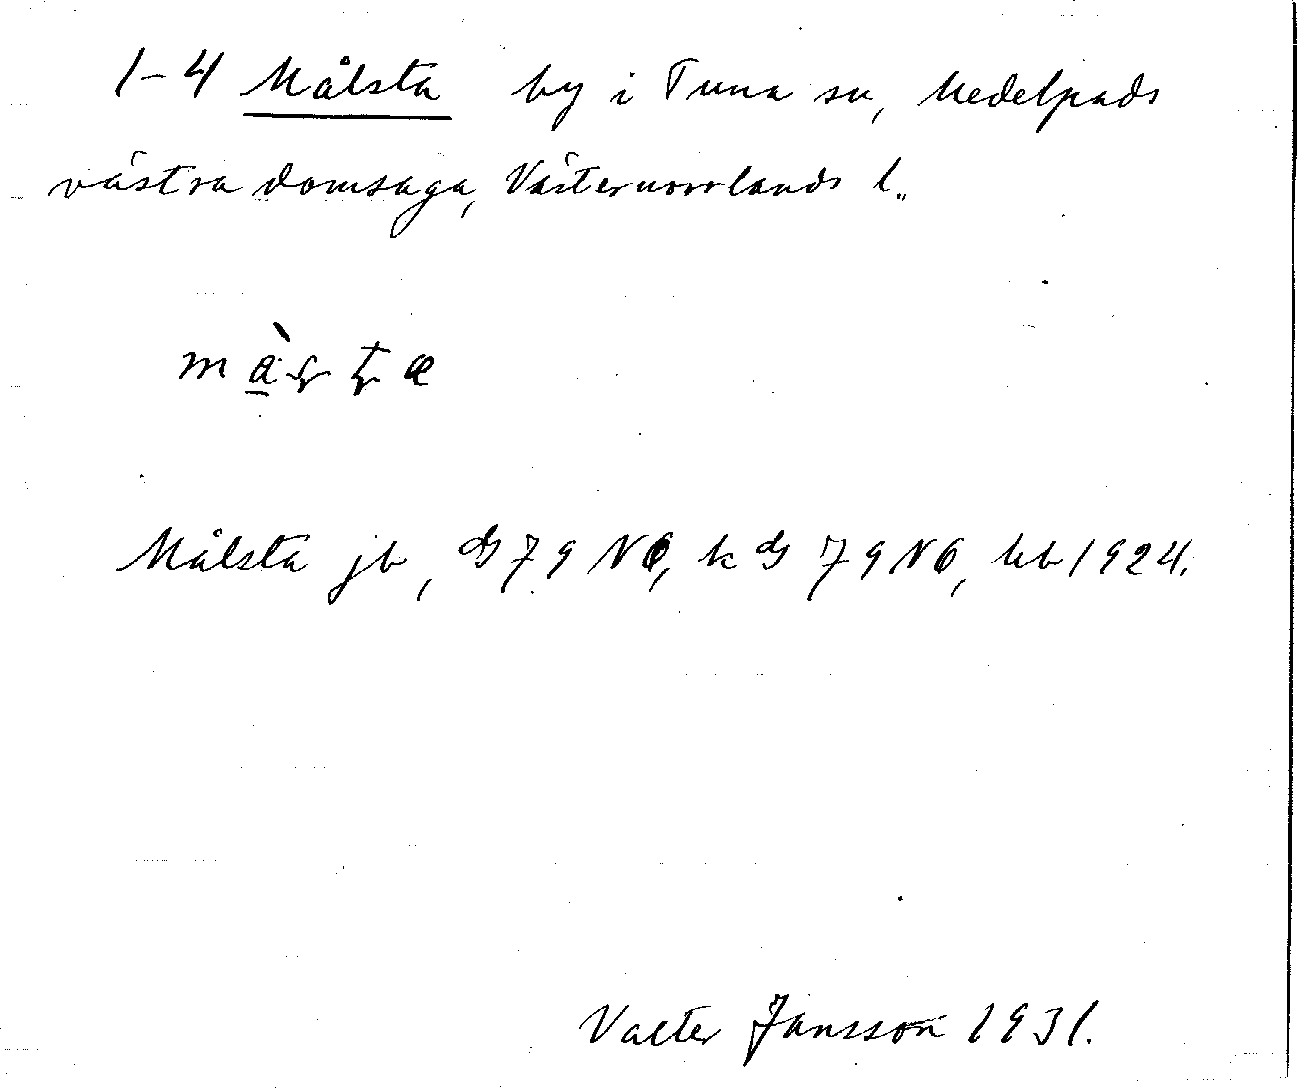 1-4 Målsta by i Tuna sn, Medelpads
västra domsaga, Västernorrlands l.
Målsta jb, GS 79 NO, k GS 79 NO, hb 1924.
Valter Jansson 1931.